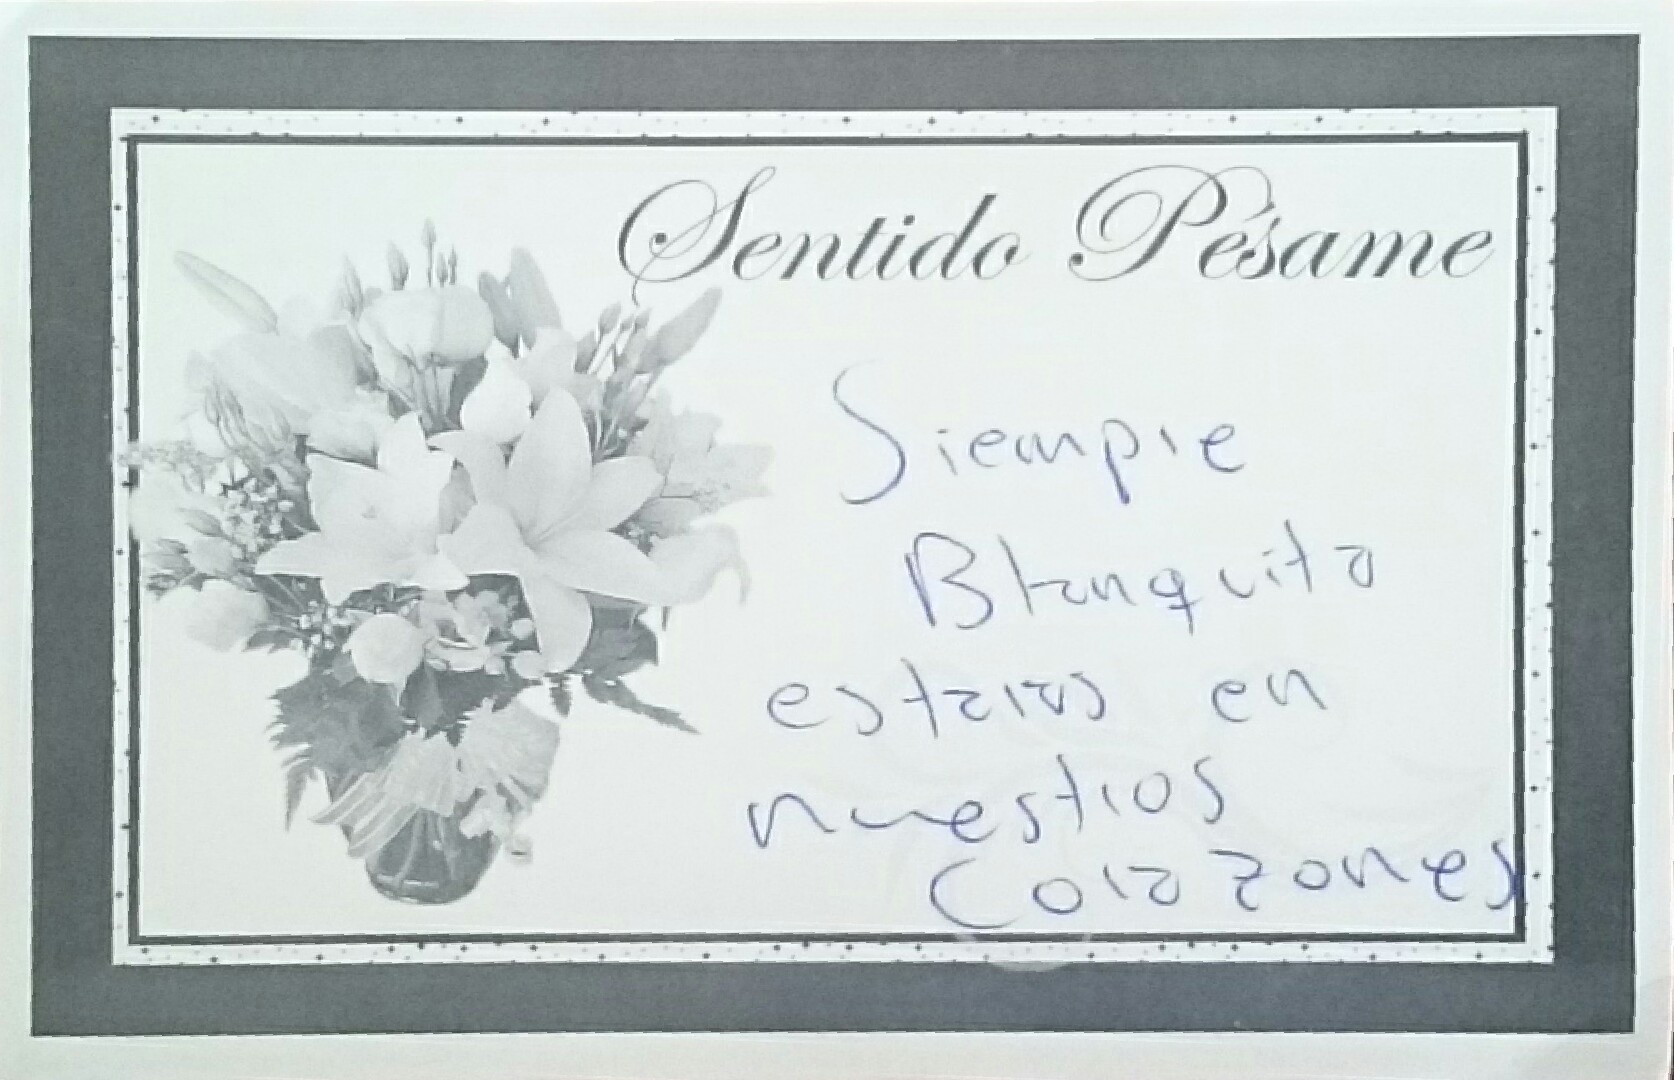 Sentido Pésame
Siempre
Blanquita
estaras en
nuestros
Corazones